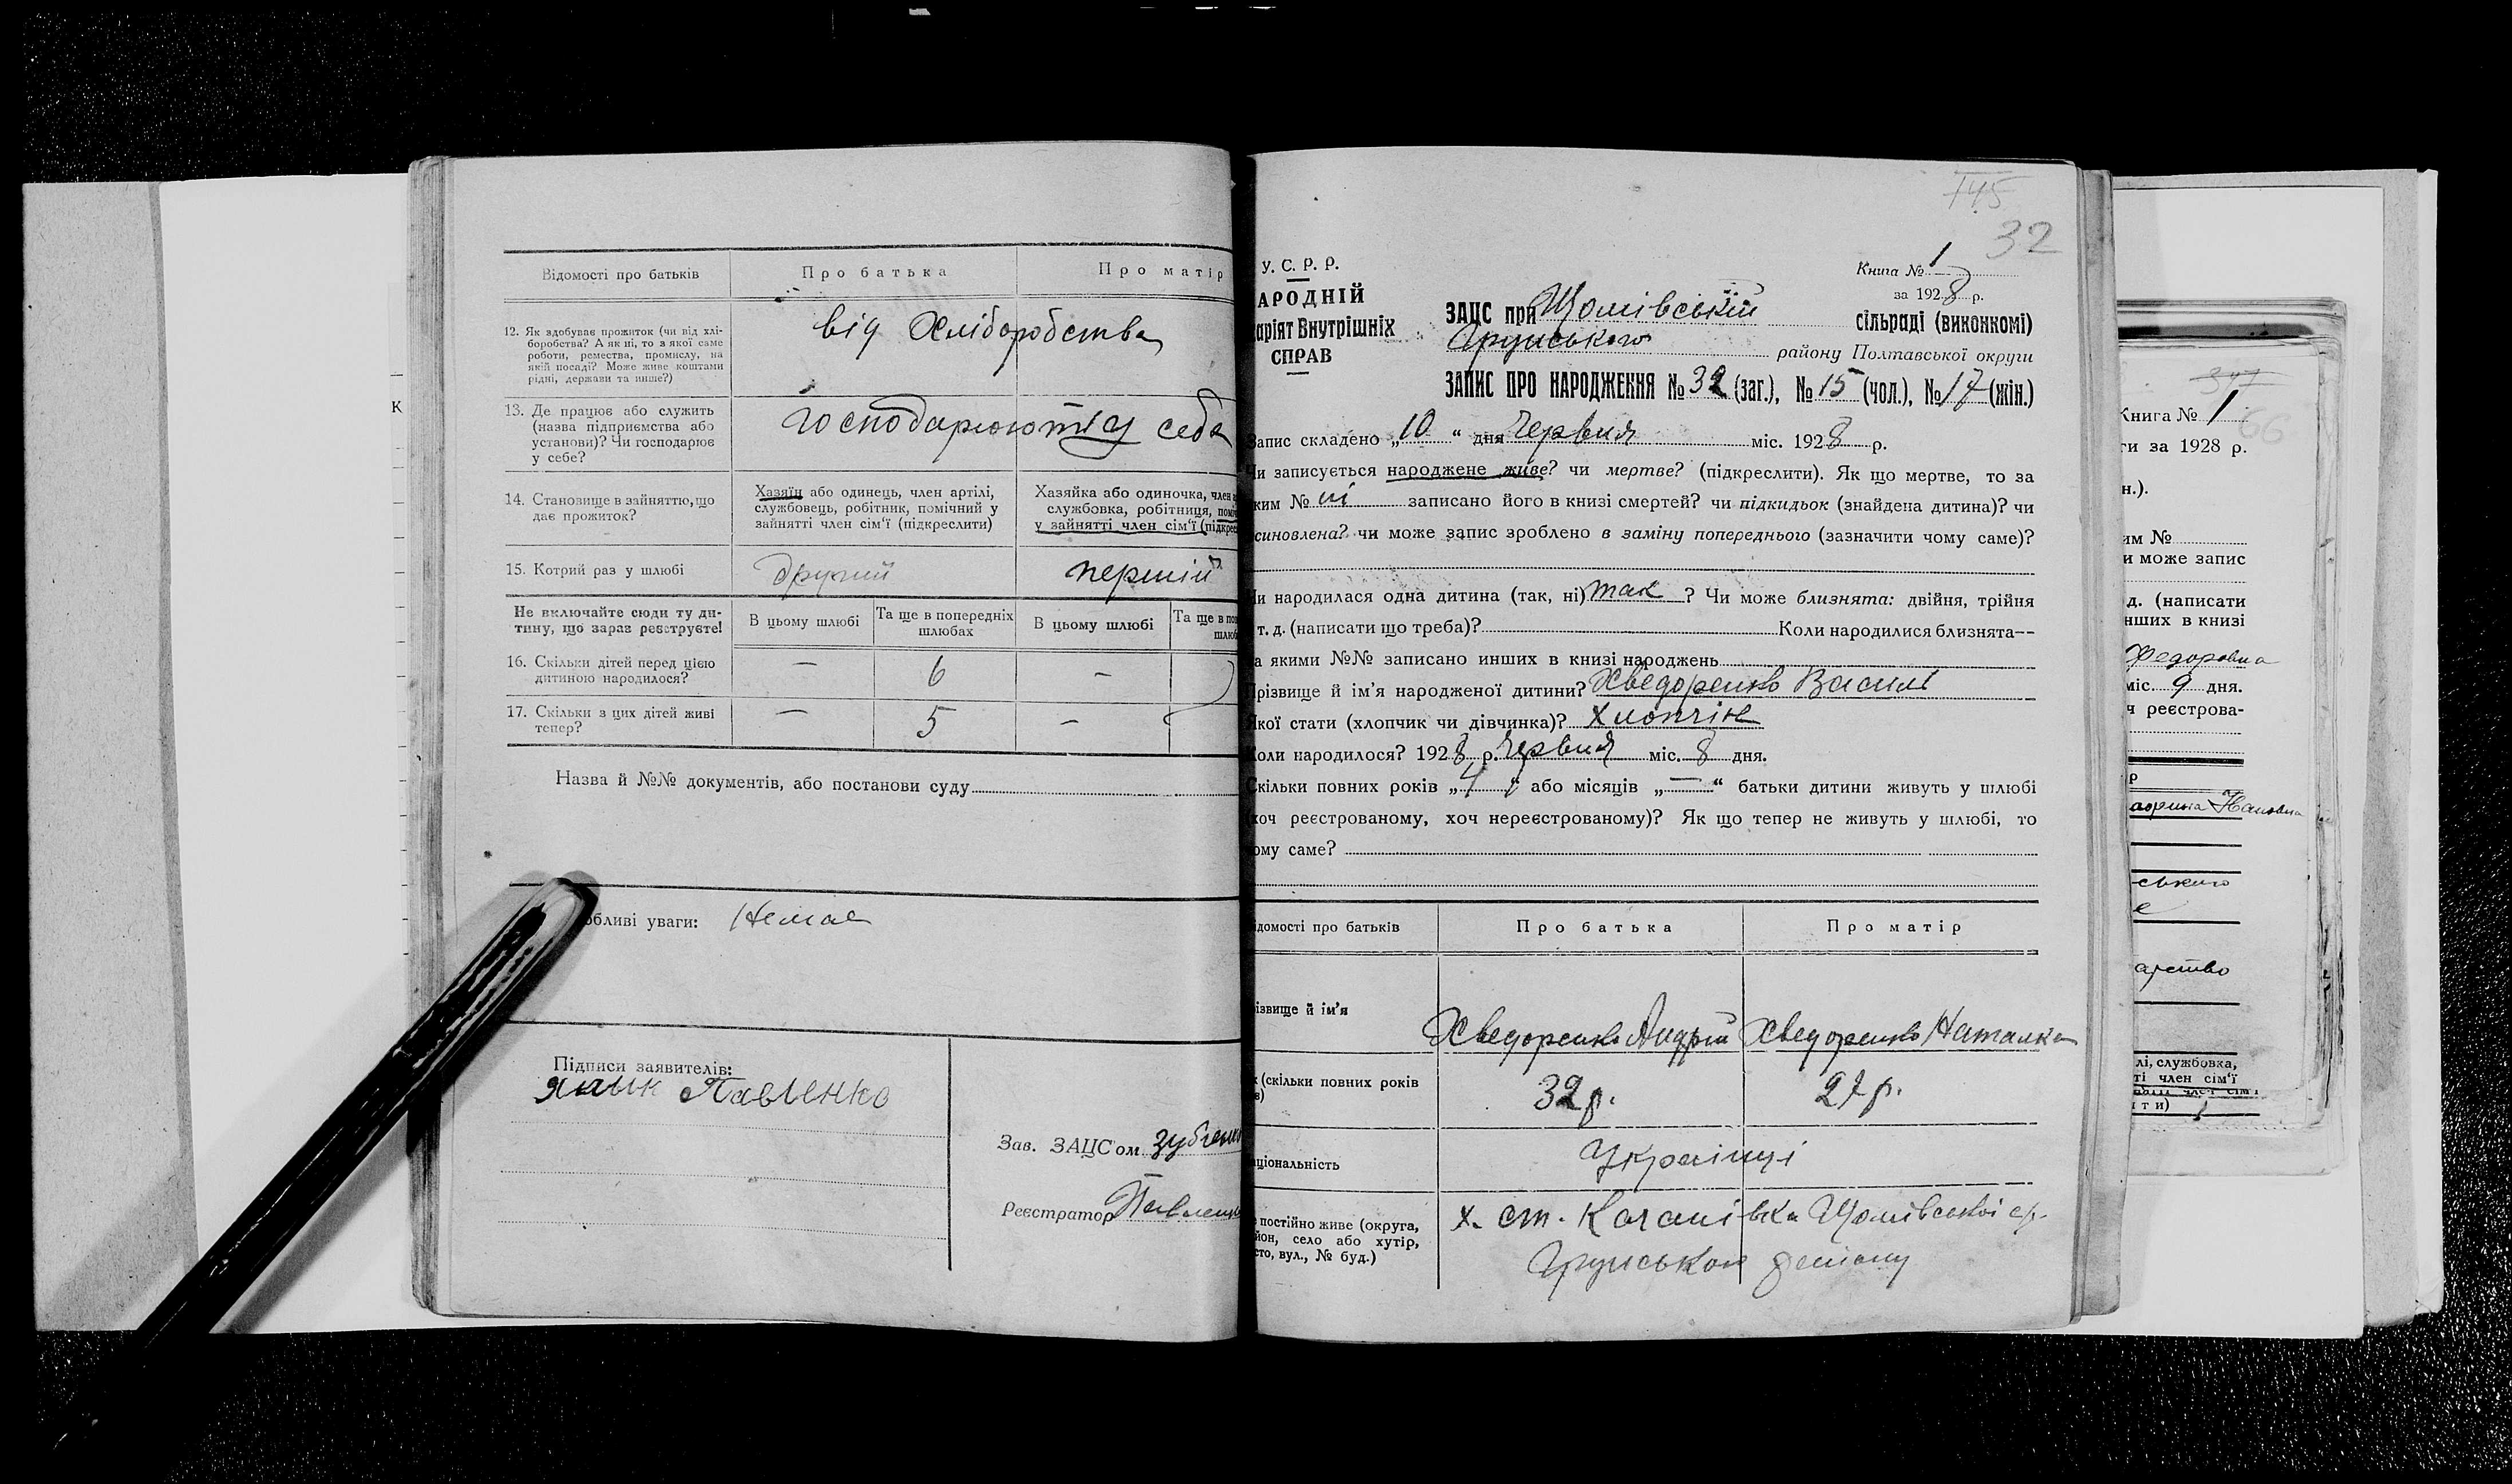 Відомості про батьків
Про батька
Про матір
12. Як здобуває прожиток (чи від хлі-
боробства? А як ні, то з якої саме
роботи, ремества, промислу, на
якій посаді? Може живе коштами
рідні, держави та инше?)
від Хліборобства
13. Де працює або служить
(назва підприємства або
установи)? Чи господарює
у себе?
господарюють у себе
14. Становище в зайняттю, що
дає прожиток?
Хазяїн або одинець, член артілі,
службовець, робітник, помічний у
зайнятті член сім'ї (підкреслити)
Хазяйка або одиночка, член
службовка, робітниця,
у зайнятті член сім'ї
15. Котрий раз у шлюбі
другий
перший
Не включайте сюди ту ди-
тину, що зараз реєструєте!
В цьому шлюбі
Та ще в попередніх
шлюбах
В цьому шлюбі
Та ще в
16. Скільки дітей перед цією
дитиною народилося?
— 6 —
17. Скільки з цих дітей живі
тепер?
— 5 —
Назва й №№ документів, або постанови суду
обливі уваги: Немає
Підписи заявителів:
Павленко
Зав. ЗАЦС'ом
Реєстратор Павленко
145
32
У. С. Р. Р.
АРОДНІЙ
аріят Внутрішніх
СПРАВ
Книга № 1
за 1928 р.
ЗАЦС при сільраді (виконкомі)
Грунського району Полтавської округи
ЗАПИС ПРО НАРОДЖЕННЯ № 32 (заг.), № 15 (чол.), № 17 (жін.)
Запис складено „10“ дня Червня міс. 1928 р.
Чи записується народжене живе? чи мертве? (підкреслити). Як що мертве, то за
ким № ні записано його в книзі смертей? чи підкидьок (знайдена дитина)? чи
синовлена? чи може запис зроблено в заміну попереднього (зазначити чому саме)?
Чи народилася одна дитина (так, ні) так? Чи може близнята: двійня, трійня
т. д. (написати що треба)? Коли народилися близнята—
а якими №№ записано инших в книзі народжень
Прізвище й ім'я народженої дитини? Хведоренко Василь
Якої стати (хлопчик чи дівчинка)? хлопчік
Коли народилося? 1928 р. Червня міс. 8 дня.
Скільки повних років „4“ або місяців „—“ батьки дитини живуть у шлюбі
хоч реєстрованому, хоч нереєстрованому)? Як що тепер не живуть у шлюбі, то
ому саме?
ідомості про батьків
Про батька
Про матір
ізвище й ім'я
Хведоренко Андрій
Хведоренко Наталка
(скільки повних років
32 р.
27 р.
аціональність
Українці
постійно живе (округа,
йон, село або хутір,
сто, вул., № буд.)
х. ст.
Грунського району
Книга № 1
66
ти за 1928 р.
н.).
им №
и може запис
д. (написати
нших в книзі
Федоровна
міс. 9 дня.
ч реєстрова-
ського
арство
лі, службовка,
ті член сім'ї